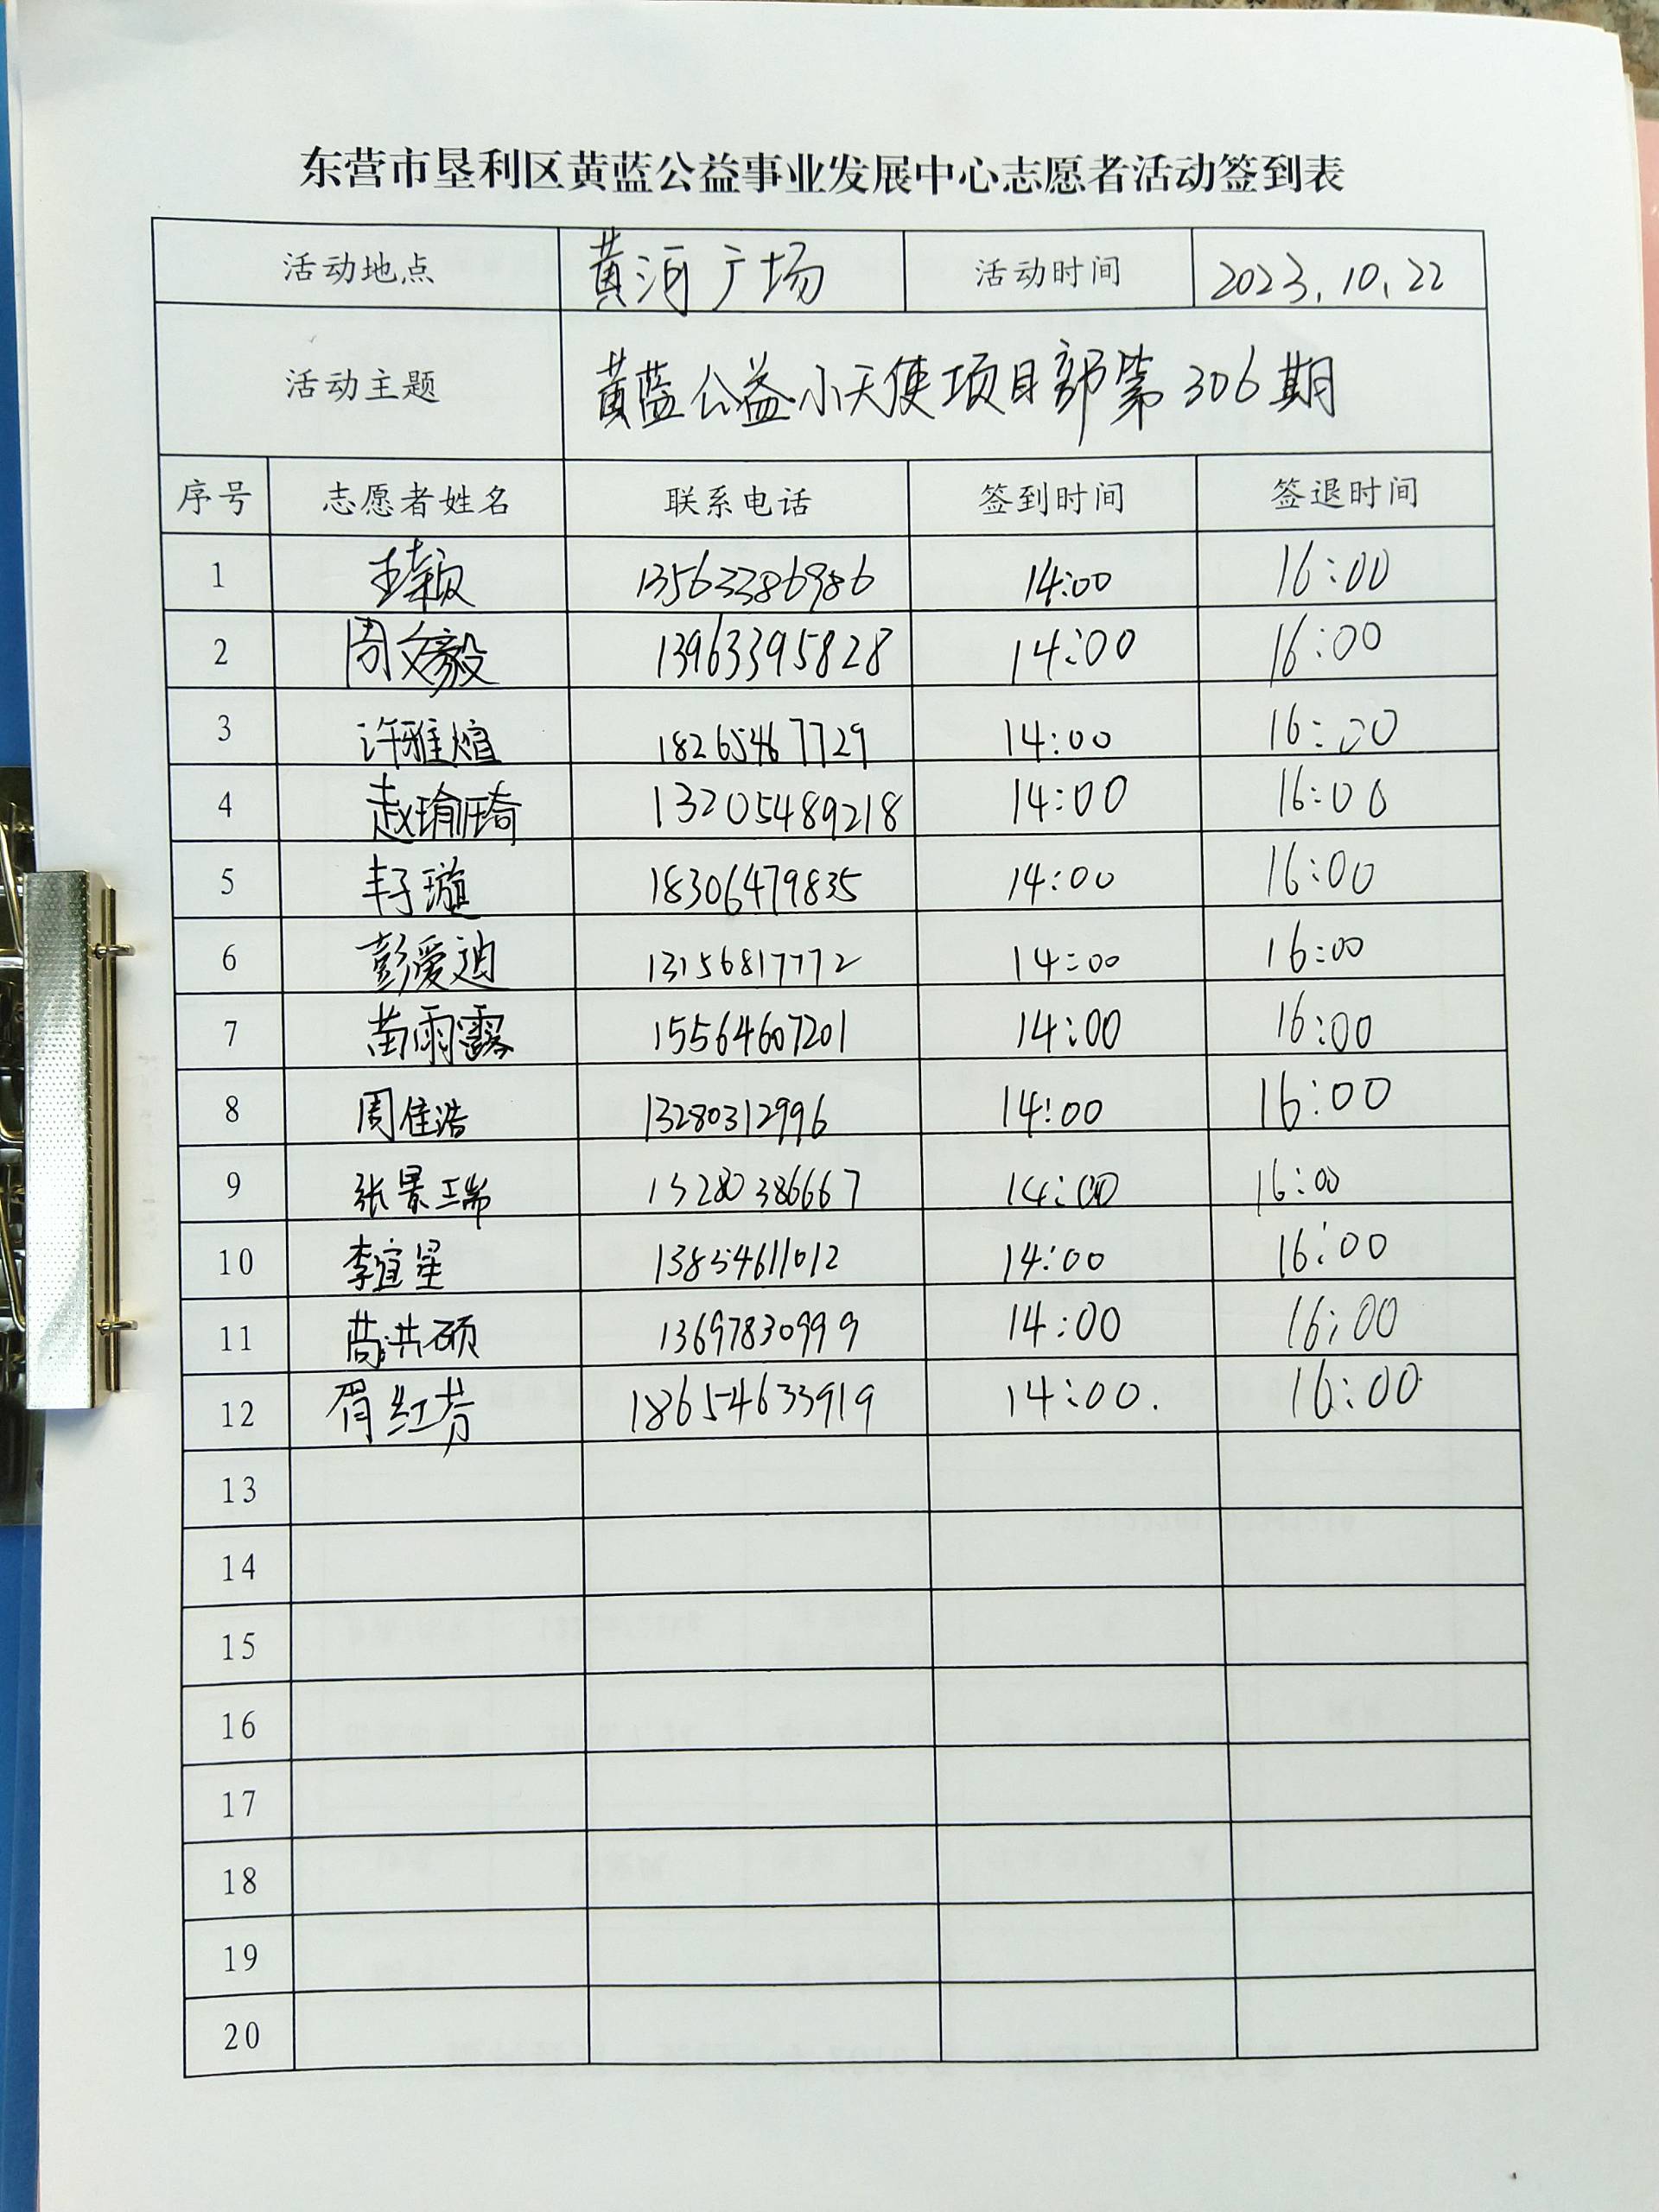 东营市垦利区黄蓝公益事业发展中心志愿者活动签到表
活动地点 黄河广场 活动时间 2023.10.22
活动主题 黄蓝公益小天使项目部第306期
序号 志愿者姓名 联系电话 签到时间 签退时间
1 13563386986 14:00 16:00
2 周文毅 13963395828 14:00 16:00
3 许雅煊 18265467729 14:00 16:00
4 赵瑜琦 13205489218 14:00 16:00
5 18306479835 14:00 16:00
6 彭爱迪 13156817772 14:00 16:00
7 苗雨露 15564607201 14:00 16:00
8 周佳浩 13280312996 14:00 16:00
9 张景瑞 13280386667 14:00 16:00
10 李宜星 13854611012 14:00 16:00
11 13697830999 14:00 16:00
12 胥红芳 18654633919 14:00. 16:00
13
14
15
16
17
18
19
20